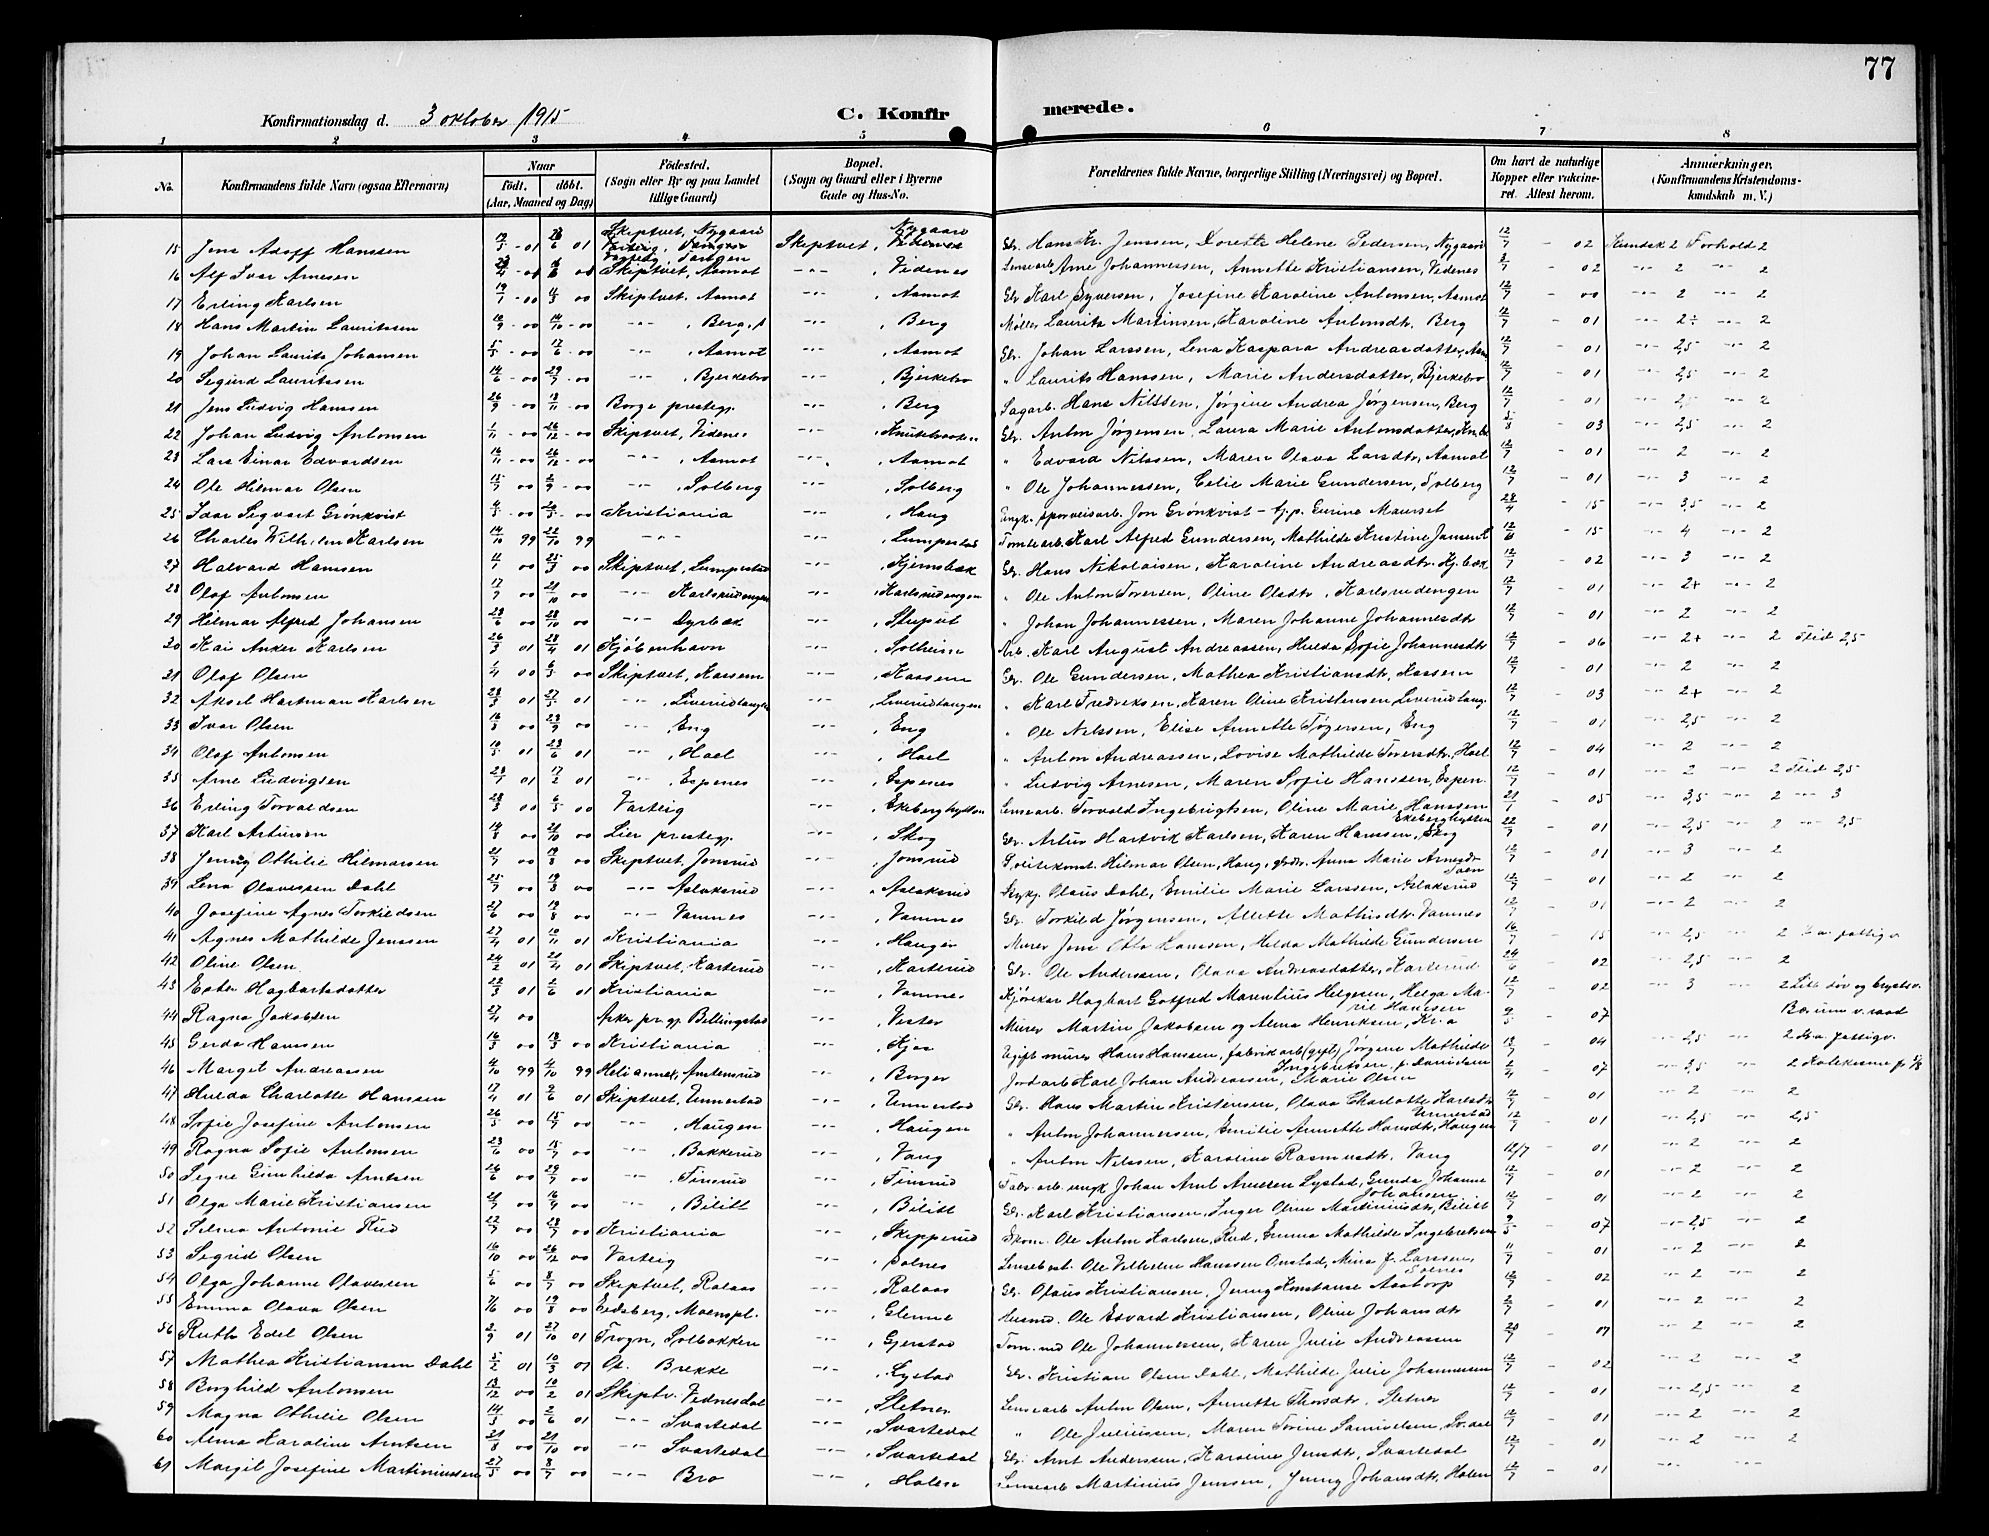 77
Konfirmationsdag d. 3 oktober 1915 C. Konfirmerede.
1 2 3 4 5 6 7 8
No. Konfirmandens fulde Navn (ogsaa Efternavn) Naar født. døbt. (Aar, Maaned og Dag) Fødested. (Sogn eller By og paa Landet tillige Gaard) Bopæl. (Sogn og Gaard eller i Byerne Gade og Hus-No. Forældrenes fulde Navne, borgerlige Stilling (Næringsvei) og Bopæl. Om havt de naturlige Kopper eller vakcineret. Attest herom. Anmerkninger. (Konfirmandens Kristendomskundskab m. V.)
15 Jens Adoff Hanssen 01 01 Skiptvet, Nygaard Skiptvet, Nygaard Gbr. Hans Kr. Jenssen, Dorette Helene Pedersen, Nygaard 12/7 - 02 Kundsk 2 Forhold 2
16 Alf Ivar Arnesen Skiptvet, Aamot -"- , Videnes Lensearb. Arne Johannessen, Annette Kristiansen, Videnes - 02 -"- 2 -"- 2
17 Erling Karlsen 19/1 - 00 4/3 00 Skiptvet, Aamot -"- , Aamot Gbr Karl Syversen, Josefine Karoline Antonsen, Aamot 12/7 - 00 -"- 2 -"- 2
18 Hans Martin Lauritssen - 00 14/10 - 00 -"- , Berg -"- , Berg Møller Laurits Martinsen, Karoline Antonsdtr, Berg 12/7 - 01 -"- 2÷ -"- 2
19 Johan Laurits Johansen 5/5 - 00 17/6 - 00 -"- , Aamot -"- , Aamot Gbr. Johan Larssen, Lena Kaspara Andreasdatter, Aam 12/7 - 01 -"- 2,5 -"- 2
20 Sigurd Lauritssen 14/6 - 00 29/7 - 00 -"- , Bjerkebro -"- , Bjerkebro " Laurits Hanssen, Marie Andersdatter, Bjerkebro 12/7 - 01 -"- 2,5 -"- 2
21 Jens Ludvig Hanssen 26/9 - 00 18/11 - 00 Borge prestegj. -"- , Berg Sagarb. Hans Nilssen, Jørgine Andrea Jørgensen, Berg 12/7 - 01 -"- 2,5 -"- 2
22 Johan Ludvig Antonsen 1/11 - 00 26/12 - 00 Skiptvet, Videnes -"- Gbr. Anton Jørgensen, Laura Marie Antonsdatter, - 03 -"- 2,5 -"- 2
23 Lars Einar Edvardsen 16/11 - 00 26/12 - 00 -"- , Aamot -"- , Aamot " Edvard Nilssen, Maren Olava Larsdtr, Aamot 12/7 - 01 -"- 2 -"- 2
24 Ole Hilmar Olsen 15/7 00 2/9 - 00 -"- , Solberg -"- , Solberg " Ole Johannessen, Celie Marie Gundersen, Solberg 12/7 - 01 -"- 3 -"- 2
25 Ivar Sigvart Grønkvist - 00 - 00 Kristiania -"- , Haug Ungk. sporveisarb. Jon Grønkvist - tj.p. Gurine Maurset 28/4 - 15 -"- 3,5 -"- 2
26 Charles Wilhelm Karlsen 14/10 99 22/10 99 -"- -"- , Lumpestad Tomtearb. Karl Alfred Gundersen, Mathilde Kristine Jansen 12/6 - 15 -"- 4 -"- 2
27 Halvard Hanssen 00 25/3 00 Skiptvet, Lumpestad -"- , Kjemsbæk Gbr. Hans Nikolaisen, Karoline Andreasdtr. Kj.bæk 12/7 - 02 -"- 3 -"- 2
28 Olaf Antonsen 17/7 00 21/10 00 -"- Karlsrudengen -"- , Karlsrudengen " Ole Anton Torersen, Oline Olsdtr, Karlsrudengen 12/7 - 01 -"- 2+ -"- 2
29 Hilmar Alfred Johansen 23/6 00 28/10 00 -"- Dyrbæk -"- , Stuput " Johan Johannessen, Maren Johanne Johannesdtr 12/7 - 01 -"- 2 -"- 2
30 Kai Anker Karlsen 26/3 01 28/4 01 Kjøbenhavn -"- , Solheim Arb. Karl August Andreassen, Hulda Sofie Johannesdtr 12/7 - 06 -"- 2+ -"- 2 Flid 2,5
31 Olaf Olsen 1/4 00 6/5 00 Skiptvet, Kassem -"- , Kassem Gbr. Ole Gundersen, Mathea Kristiansdtr, Kassem 12/7 - 01 -"- 2 -"- 2
32 Aksel Hartman Karlsen 23/3 01 27/5 01 -"- , Liverudtangen -"- , Liverudtangen " Karl Fredriksen, Karen Oline Kristensen Liverudtang. 12/7 - 03 -"- 2+ -"- 2
33 Ivar Olsen 16/3 00 23/9 00 -"- , Eng -"- , Eng " Ole Nilssen, Elise Annette Tøgersen, Eng 12/7 - 01 -"- 2,5 -"- 2
34 Olaf Antonsen 10/5 01 23/6 01 -"- , Hoel -"- , Hoel " Anton Andreassen, Lovise Mathilde Toversdtr, Hoel 12/7 - 04 -"- 2 -"- 2
35 Arne Ludvigsen 23/1 01 17/2 01 -"- , Espenes -"- , Espenes " Ludvig Arnesen, Maren Sofie Hanssen, Espen. 12/7 - 01 -"- 2 -"- 2 Flid 2,5
36 Erling Torvaldsen 28/3 00 6/5 00 Varteig -"- , Ekeberghytten Lensearb. Torvald Ingebrigtsen, Oline Marie Hanssen Ekeberghytten - 05 -"- 3,5 -"- 2 -"- 3
37 Karl Artursen 14/8 00 21/10 00 Lier prestegj. -"- , Skog Gbr. Artur Hartvik Karlsen, Karen Hanssen, Skog 22/7 - 01 -"- 2,5 -"- 2 -"- 2,5
38 Jenny Othilie Hilmarsen 21/7 00 19/8 00 Skiptvet, Jonsrud -"- , Jonsrud Politikonst. Hilmar Olsen, Haug, Anna Marie Arnesdtr 12/7 - 01 -"- 3 -"- 2
39 Lena Olavessen Dahl 25/7 00 19/8 00 -"- Aslaksrud -"- , Aslaksrud Olaus Dahl, Emilie Marie Larssen, Aslaksrud 12/7 - 01 -"- 2 -"- 2
40 Josefine Agnes Torkildsen 27/6 00 19/8 00 -"- Vamnes -"- , Vamnes Gbr. Torkild Jørgensen, Allette Mathisdtr. Vamnes 12/7 - 01 -"- 2 -"- 2
41 Agnes Mathilde Jenssen 27/4 01 10/11 01 Kristiania -"- , Haugen Murer Jens Otto Hanssen, Hilda Mathilde Gundersen 16/7 - 15 -"- 2,5 -"- 2 fattigv
42 Oline Olsen 24/2 01 21/4 01 Skiptvet, Karterud -"- , Karterud Gbr. Ole Anderssen, Olava Andreasdatter, Karterud 24/6 - 02 -"- 2,5 -"- 2
43 Ester Hagbartsdatter 22/3 01 2/6 01 Kristiania -"- , Vamnes Kjøreker Hagbart Gotfred Marentius Helgesen, Helga Marie Hanssen 12/7 - 02 -"- 3 -"- 2 Litt døv og brystsv.
44 Ragna Jakobsen 27/4 00 Aker pr.gj. Billingstad -"- , Vister Murer Martin Jakobsen og Alma Henriksen, Kr.a - 07 Bærum v. raad
45 Gerda Hanssen 16/3 00 00 Kristiania -"- Ugift murer Hans Hanssen, fabrikarb (gift) Jørgine Mathilde Ingebretsen 12/7 - 04 -"- 2,5 -"- 2 fattigv.
46 Margit Andreassen 4/10 99 4/10 99 -"- , Borger Jordarb Karl Johan Andreassen, Marie Olsen 2/4 - 07 -"- 3,5 -"- 2
47 Hulda Charlotte Hanssen 17/4 01 2/6 01 Skiptvet, Unnestad -"- , Unnestad Gbr. Hans Martin Kristensen, Olava Charlotte Karlsdtr Unnestad 12/7 - 01 -"- 2 -"- 2
48 Sofie Josefine Antonsen 26/5 00 15/7 00 -"- , Haugen -"- , Haugen " Anton Johannessen, Emilie Annette Hansdtr, Haugen 12/7 - 01 -"- 2,5 -"- 2,5
49 Ragna Sofie Antonsen 23/6 00 15/7 00 -"- , Bakkerud -"- , Vang " Anton Nilssen, Karoline Rasmusdtr. Vang 12/7 - 01 -"- 2 -"- 2
50 Signe Gunhilda Arntsen 26/6 00 29/7 00 -"- , Finsrud -"- , Finsrud Fabr. arb. ungk Johan Arnt Arnesen Lystad, Gunda Johanne Johansen 12/7 - 01 -"- 2 -"- 2
51 Olga Marie Kristiansen 00 00 -"- , Bilitt -"- , Bilitt Gbr. Karl Kristiansen, Inger Oline Martiniusdtr, Bilitt 12/7 - 01 -"- 2 -"- 2
52 Selma Antonie Rud 22/7 00 00 Kristiania -"- , Skipperud Skom. Ole Anton Karlsen Rud, Emma Mathilde Ingebretsen 9/5 - 07 -"- 2,5 -"- 2
53 Sigrid Olsen 16/10 00 26/12 00 Varteig -"- , Solnes Ole Vilhelm Hanssen Onstad, Mina f. Larssen, Solnes 11/7 - 01 -"- 2 -"- 2
54 Olga Johanne Olavesen 5/6 00 8/7 00 Skiptvet, Ralaas -"- , Ralaas Gbr. Olaus Kristiansen, Jenny Konstanse Aastorp 12/7 - 02 -"- 2 -"- 2
55 Emma Olava Olsen 7/6 00 19/8 00 Eidsberg, Moenspl. -"- , Glenne Husmd. Ole Edvard Kristiansen, Oline Johansdtr 2/7 - 01 -"- 2 -"- 2
56 Ruth Edel Olsen 2/9 01 27/10 01 Trøgn, Solbakken -"- , Gjerstad Tom. md Ole Johannessen, Karen Julie Andreassen - 07 -"- 2 -"- 2
57 Mathea Kristiansen Dahl 5/2 01 10/3 01 Os. Brekke -"- , Lystad Gbr. Kristian Olsen Dahl, Mathilde Julie Johannessen 12/7 - 02 -"- 2 -"- 2
58 Borghild Antonsen 13/12 00 10/2 01 Skiptv. Vidnesdal -"- , Sletner Lensearb Anton Olsen, Annette Thorsdtr, Sletner 12/7 - 01 -"- 2,5 -"- 2
59 Magna Othilie Olsen 14/3 00 2/6 01 -"- Svartedal -"- , Svartedal " Ole Juliussen, Maren Torine Samuelsen, Sv.dal 12/7 - 01 -"- 2 -"- 2
60 Alma Karoline Arntsen 21/8 00 21/10 00 -"- Svartedal -"- , Svartedal Gbr. Arnt Anderssen, Karoline Jensdtr, Svartedal 12/7 - 01 -"- 2 -"- 2
61 Margit Josefine Martiniussen 27/5 00 8/7 00 -"- Bro -"- , Holen Lensearb Martinius Jenssen, Jenny Johansdtr, Holen 12/7 - 01 -"- -"-